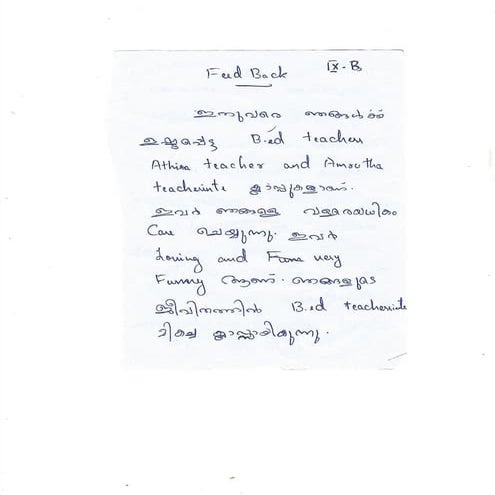 Feed Back
IX-B
ഇന്നുവരെ ഞങ്ങൾക്ക്
ഇഷ്ടപ്പെട്ട B.ed teachers
Athira teacher and Amrutha
teacherinte ക്ലാസ്സുകളാണ്.
ഇവർ ഞങ്ങളെ വളരെയധികം
Care ചെയ്യുന്നു. ഇവർ
Loving and very
Funny ആണ്. ഞങ്ങളുടെ
ജീവിതത്തിൽ B.ed teacherinte
മികച്ച ക്ലാസ്സായിരുന്നു.